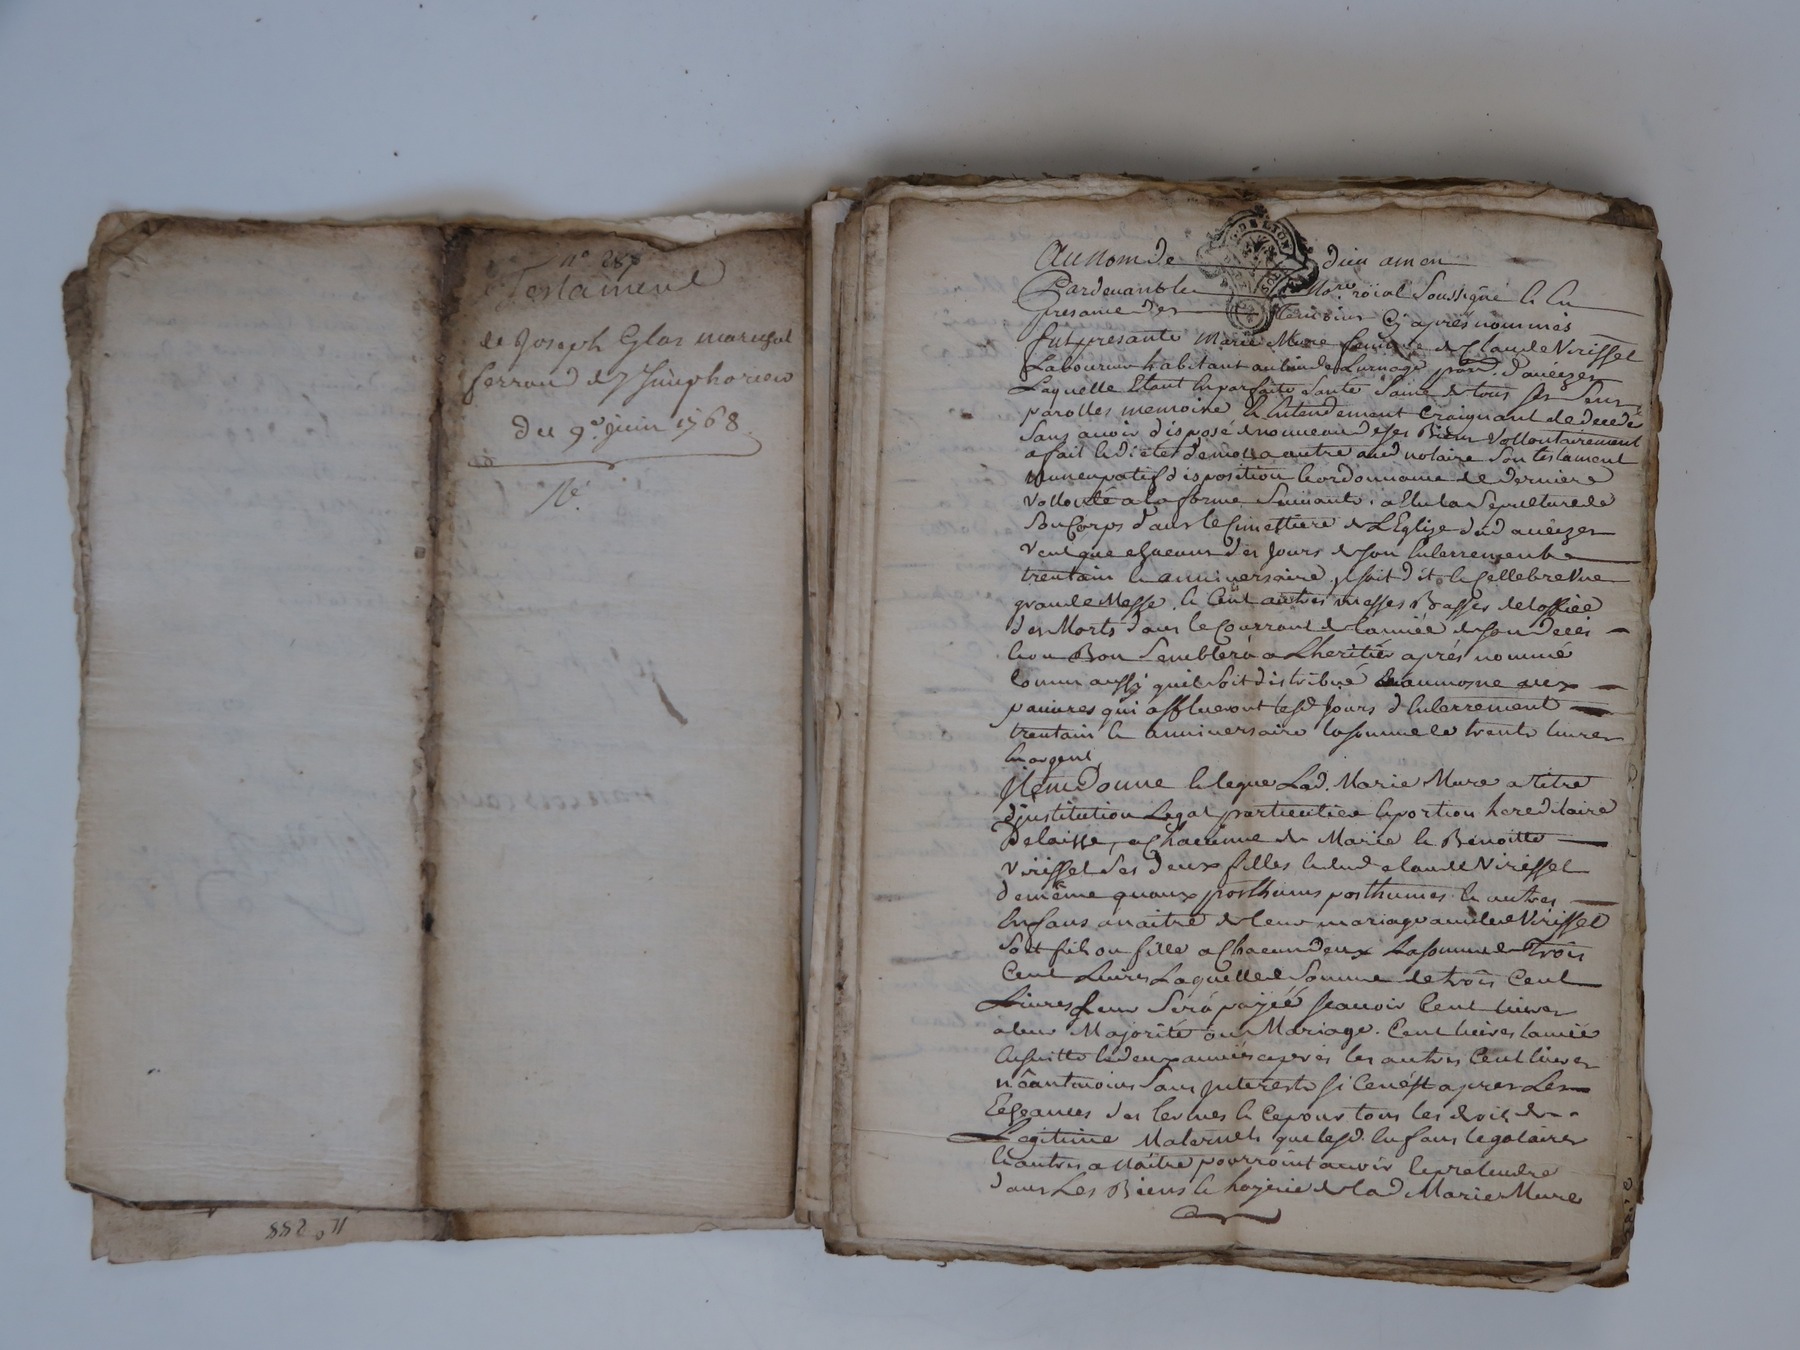 n° 288
Testament
de Joseph Glas marechal
ferrand de St Simphorien
du 9e. juin 1768
n° 288
Au nom de dieu amen
Pardevant le Nore. roïal Soussigné & En
presance des temoins Cy après nommés
fut presante Marie Mure femme de Claude Viriffel
Laboureur habitant au lieu de paroi. d'aveizes
Laquelle Etant En parfaite Santé Saine de tous Ses Sens
parolles memoire & Entendement Craignant de deceder
Sans avoir disposé de nouveau de ses Biens Vollontairement
a fait & dicté de mot a autre aud notaire Son testament
nuncupatif disposition & ordonnance de derniere
Vollonté a la forme Suivante. a Elu la Sepulture de
Son Corps dans le Cimettiere de L'Eglise dud aveizes
Veut que chacuns des Jours de son Enterrement
trentain & anniversaire il soit dit & Cellebré Une
grande Messe. & Cent autres messes Basses de loffice
des Morts dans le Courrant de l'année de son decès
Comme aussy quil Soit distribué En aumosne aux
pauvres qui afflueront lesd Jours d'Enterrement
trentain & anniversaire la somme de trente livres
En argent
Item Donne & legue Lad. Marie Mure a titre
d'institution Legat particulier & portion hereditaire
Delaissé, a Chacunne de Marie & Benoitte
Viriffel Ses deux filles & dud Claude Viriffel
de même quaux posthums posthumes & autres
Enfans a naitre de leur mariage aud Viriffel
Soit fils ou fille a Chacun deux La somme de Trois
Cent Livres Laquelle Somme de trois Cent
Livres Leur Sera payéé Scavoir Cent livres
a leur Majorité ou Mariage. Cent livres lannée
Ensuitte & deux années après les autres Cent livres
néantmoins Sans Interests Si Ce nést apres Les
Echeances des termes & Ce pour tous les droits de
Legitime Maternels que lesd. Enfans legataires
& autres a Naître pourroint avoir & pretendre
dans Les Biens & hoyerie de lad Marie Mure